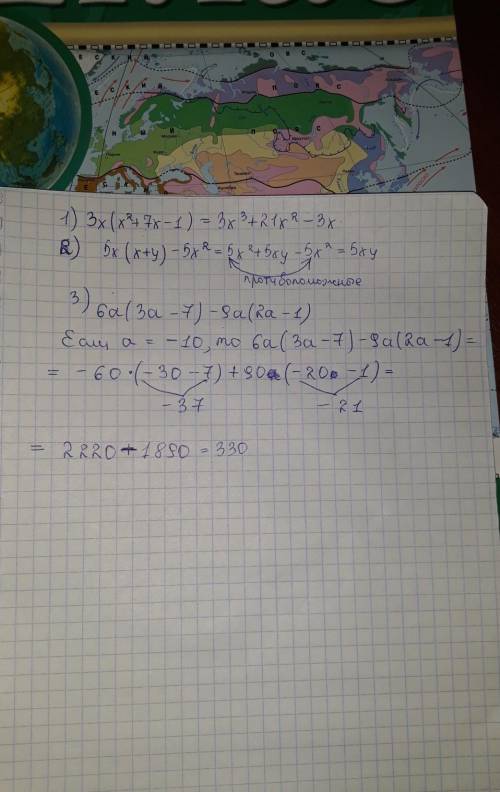 1) 3x(x²+7x-1) = 3x³+21x²-3x
2) 5x(x+y)-5x² = 5x²+5xy-5x² = 5xy
противоположные
3) 6a(3a-7)-9a(2a-1)
Если a = -10, то 6a(3a-7)-9a(2a-1)=
= -60·(-30-7)+90·(-20-1)=
-37 -21
= 2220-1890=330